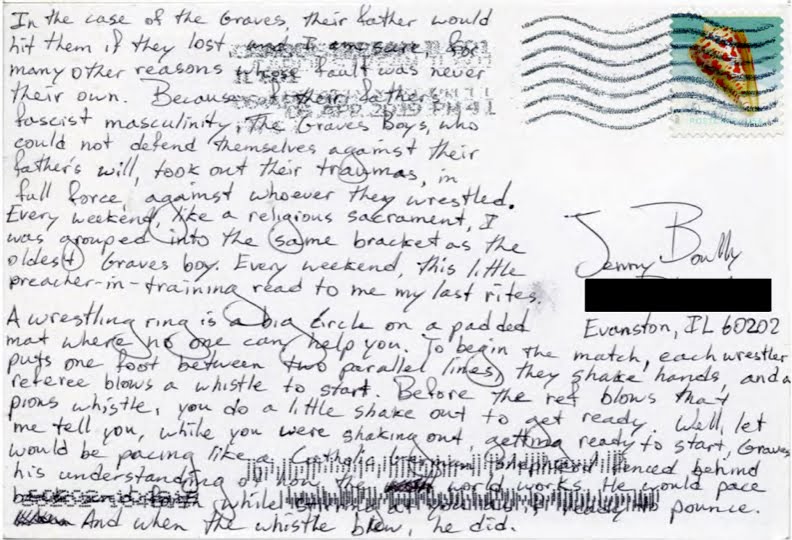 In the case of the Graves, their father would
hit them if they lost, and I am sure, for
many other reasons whose fault was never
their own. Because of their father's
fascist masculinity, the Graves boys, who
could not defend themselves against their
father's will, took out their traumas, in
full force, against whoever they wrestled.
Every weekend, like a religious sacrament, I
was grouped into the same bracket as the
oldest Graves boy. Every weekend, this little
preacher-in-training read to me my last rites.
A wrestling ring is a big circle on a padded
mat where no one can help you. To begin the match, each wrestler
puts one foot between two parallel lines, they shake hands, and a
referee blows a whistle to start. Before the ref blows that
pious whistle, you do a little shake out to get ready. Well, let
me tell you, while you were shaking out, getting ready to start, Graves
would be pacing like a Catholic German Shepherd fenced behind
his understanding of how the world works. He would pace
back and forth while staring at you as if ready to pounce.
And when the whistle blew, he did.
Jenny Boully
Evanston, IL 60202
APR 2019 PM 4 L